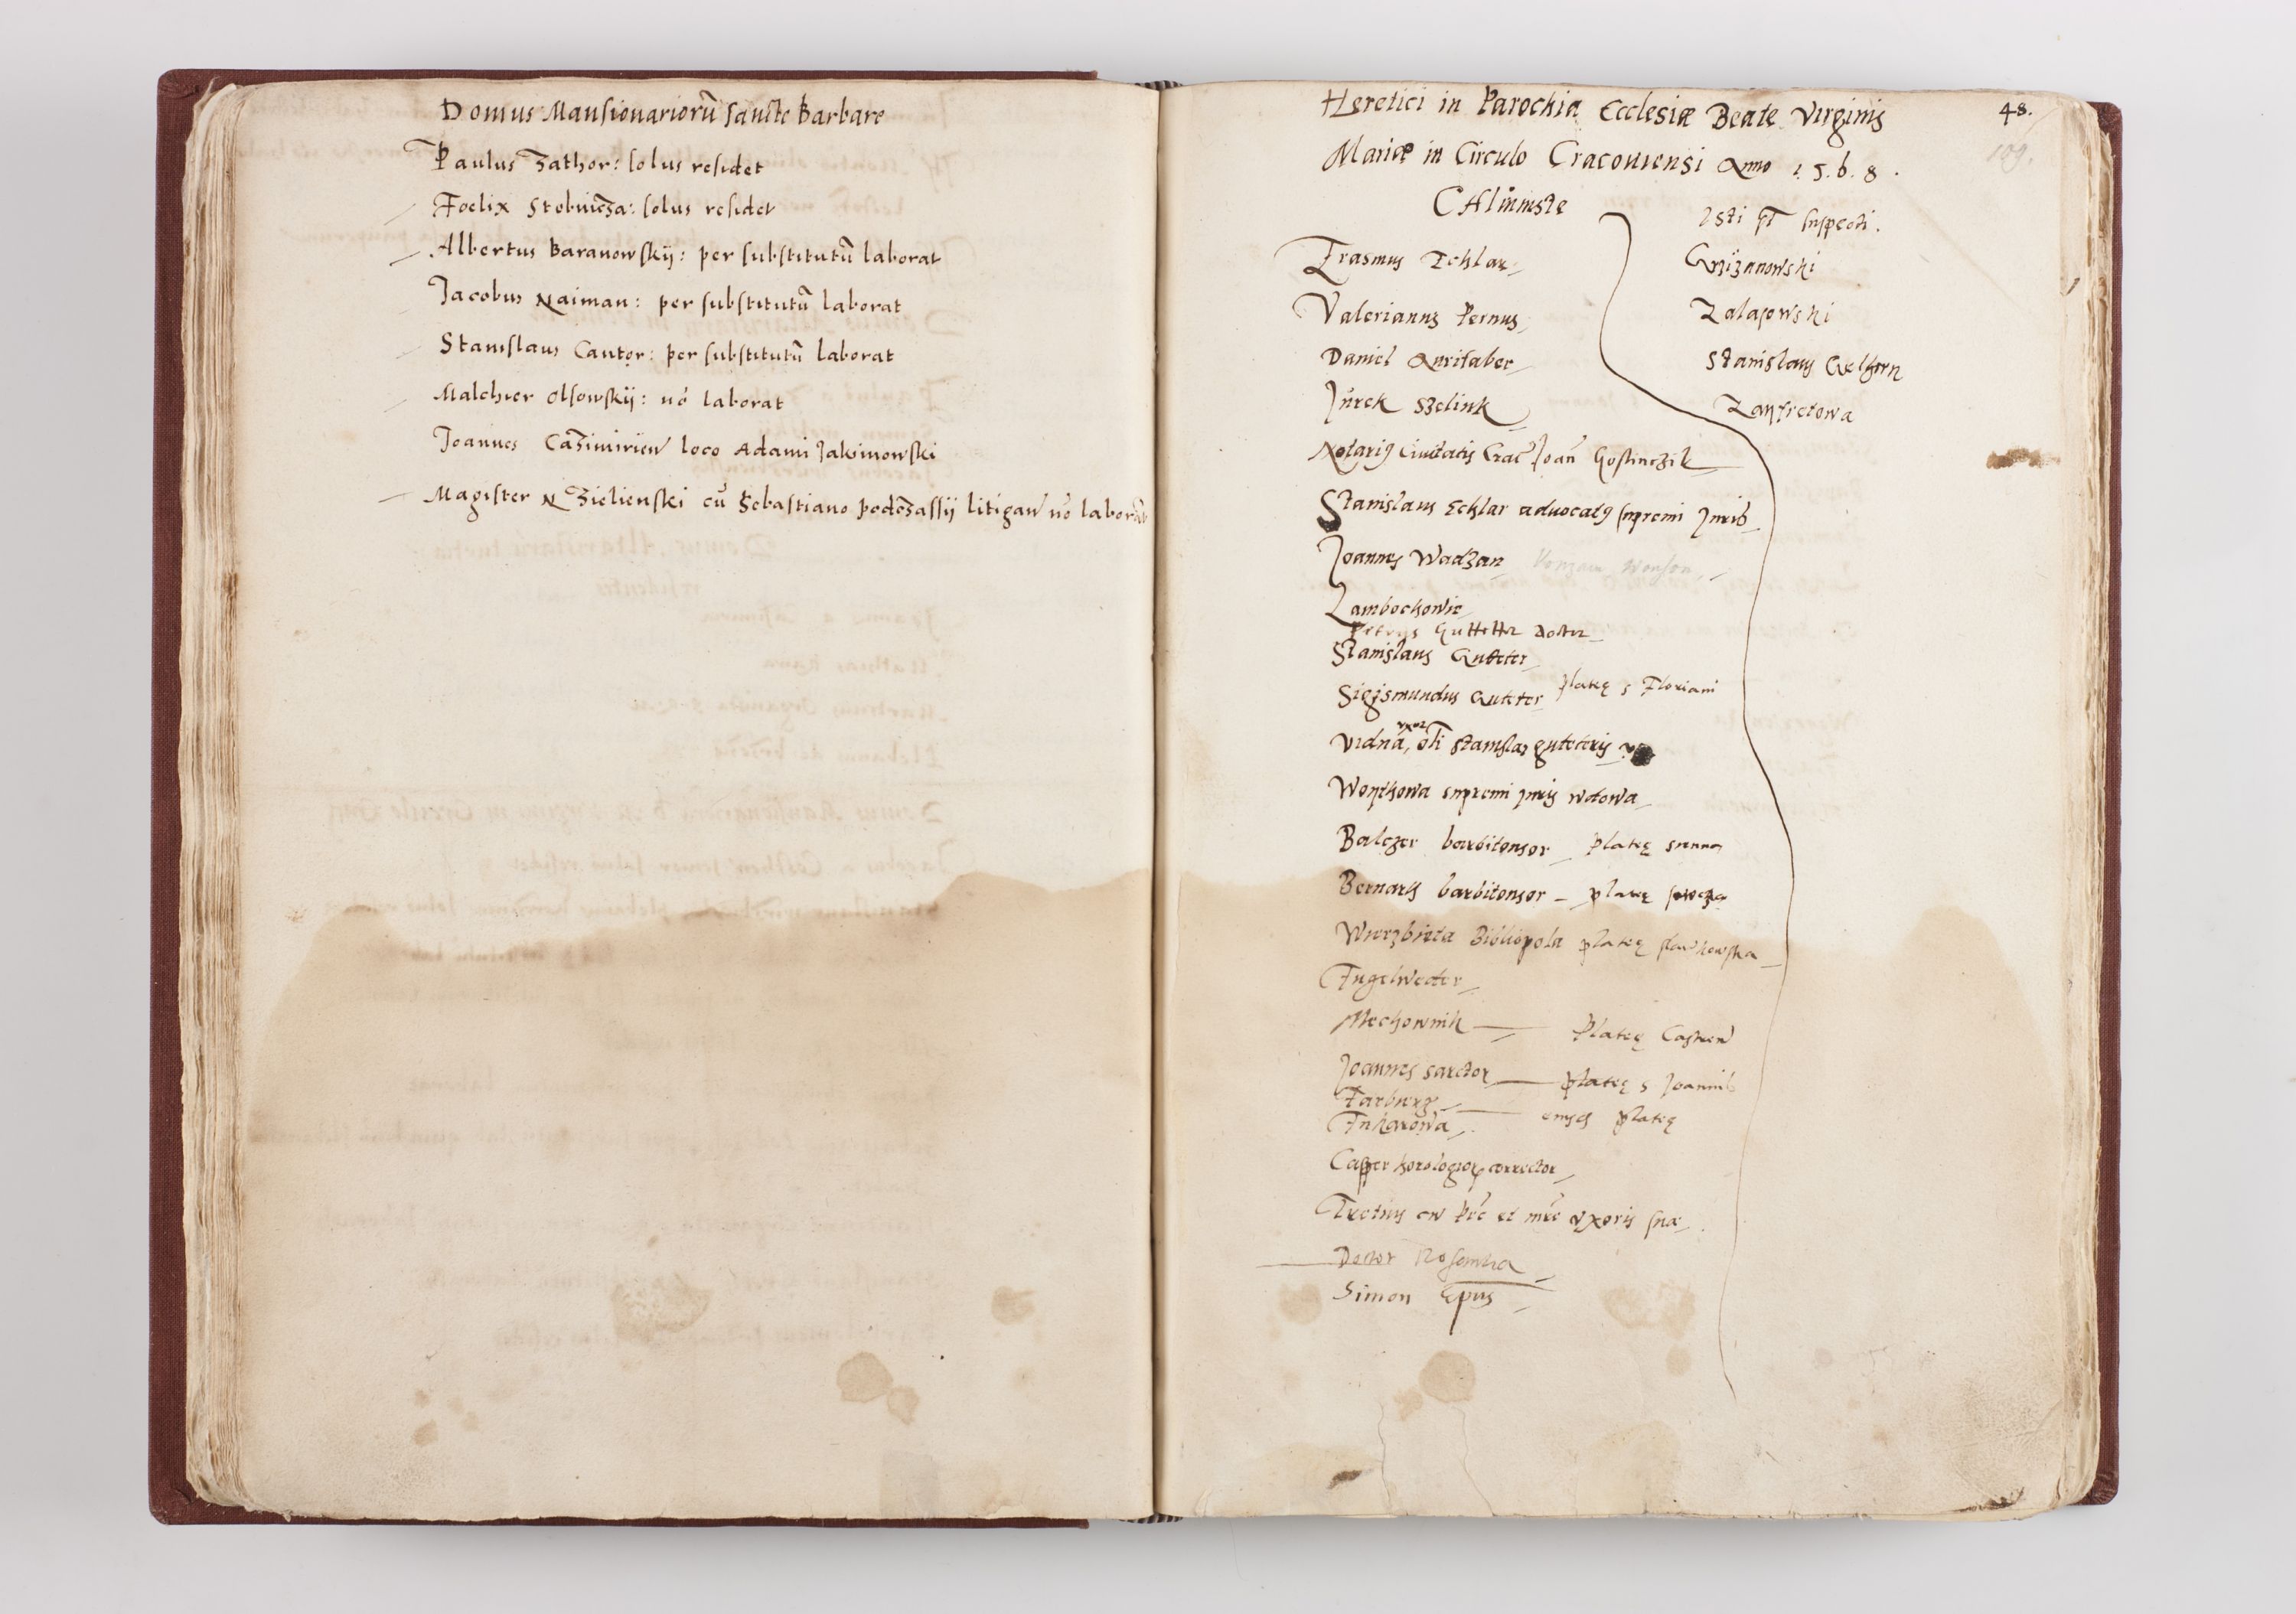 Domus Mansionariorū sancte Barbare
Paulus Zathor: solus residet
Foelix Stobnicza: solus residet
Albertus Baranowskij: per substitutū laborat
Jacobus Naiman: per substitutū laborat
Stanislaus Cantor: per substitutū laborat
Malchier Olsowskij: nō laborat
Joannes Cazimirien loco Adami Jakimowski
Magister N Zielienski cū Sebastiano podczassij litigan nō laborat
Heretici in Parochia Ecclesiæ Beate Virginis
48.
Mariæ in Circulo Cracoviensi Anno 1.5.6.8.
109.
Calviniste
Isti sūt suspecti.
Erasmus Echlar
Grzizanowski
Valerianus Pernus
Zalasowski
Daniel Aurifaber
Stanislaus Gelhorn
Jurek Szelink
Zanfretowa
Notarius Civitatis Crac Joan Gostinczik
Stanislaus Echlar advocatus supremi Juris
Joannes Wadzan
Lambochowie
Petrus Gutteter Doctor
Stanislaus Guteter
Sigismundus Guteter plateę s Floriani
uxor
vidua, oli Stanislai guteteris
Woythowa supremi juris wdowa
Balczer barbitonsor plateę
Bernart barbitonsor - plateę
Wierzbieta Bibliopola plateę slawkowska
Fugelweder
Mechownik plateę Castren
Joannes sartor plateę s Joannis
Farburg
Fukarowa eiusdē plateę
Casper horologiorum corrector
Tretius cu pre et mre uxoris suæ
Doctor
Simon Epus